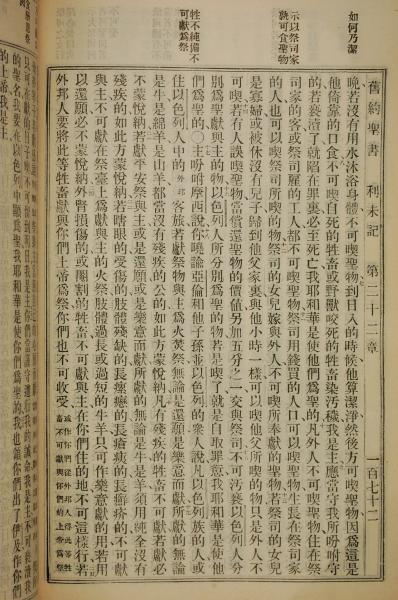 如何乃潔
示以祭司家
孰可食聖物
牲不純備不
可獻爲祭
舊約聖書 利未記 第二十二章 一百七十二
晚若沒有用水沐浴身體不可喫聖物到日入的時候他算潔淨然後方可喫聖物因爲這是
他倚靠的口食不可喫自死的牲畜或野獸咬死的牲畜染汚穢我是主應當守我所吩咐守
的若褻瀆了就陷在罪裏必至死亡我耶和華是使他們爲聖的凡外人不可喫聖物住在祭
司家的客或祭司雇的工人都不可喫聖物祭司用錢買的人口可以喫聖物生長在祭司家
的人也可以喫祭司所喫的物祭司的女兒嫁與外人不可喫所奉獻的聖物若祭司的女兒
是寡婦或被休沒有兒子歸到他父家裏與他小時一樣可以喫他父所喫的物只是外人不
可喫若有人誤喫聖物當償還聖物的價值另加五分之一交與祭司不可汚褻以色列人分
別爲聖獻與主的物以色列人所分別爲聖的物若是喫了就是自取罪意我耶和華是使他
們爲聖的主吩咐摩西說你曉諭亞倫和他子孫並以色列的衆人說凡以色列族的人或
住以色列人中的外邦客旅若獻祭物與主爲火焚祭無論是還願是樂意而獻所獻的無論
是牛是綿羊是山羊都當沒有殘疾的公的如此方蒙悅納凡有殘疾的牲不可獻若獻必
不蒙悅納若獻平安祭與主或是還願或是樂意而獻所獻的無論是牛是羊須用純全沒有
殘疾的如此方蒙悅納若瞎眼的受傷的肢體殘缺的長瘡癤的長癬疥的不可獻
與主不可獻在祭臺上爲獻與主的火祭肢體過長或過短的牛羊只可作樂意獻的用若用
以還願必不蒙悅納外腎損傷的或閹割的牲畜不可獻與主在你們住的地不可這樣行若
外邦人要將此等牲畜獻與你們上帝爲祭你們也不可收受
的聖名我要在以色列中顯爲聖我耶和華是使你們爲聖的我也讓你們出了伊及作你們
的上帝我是主